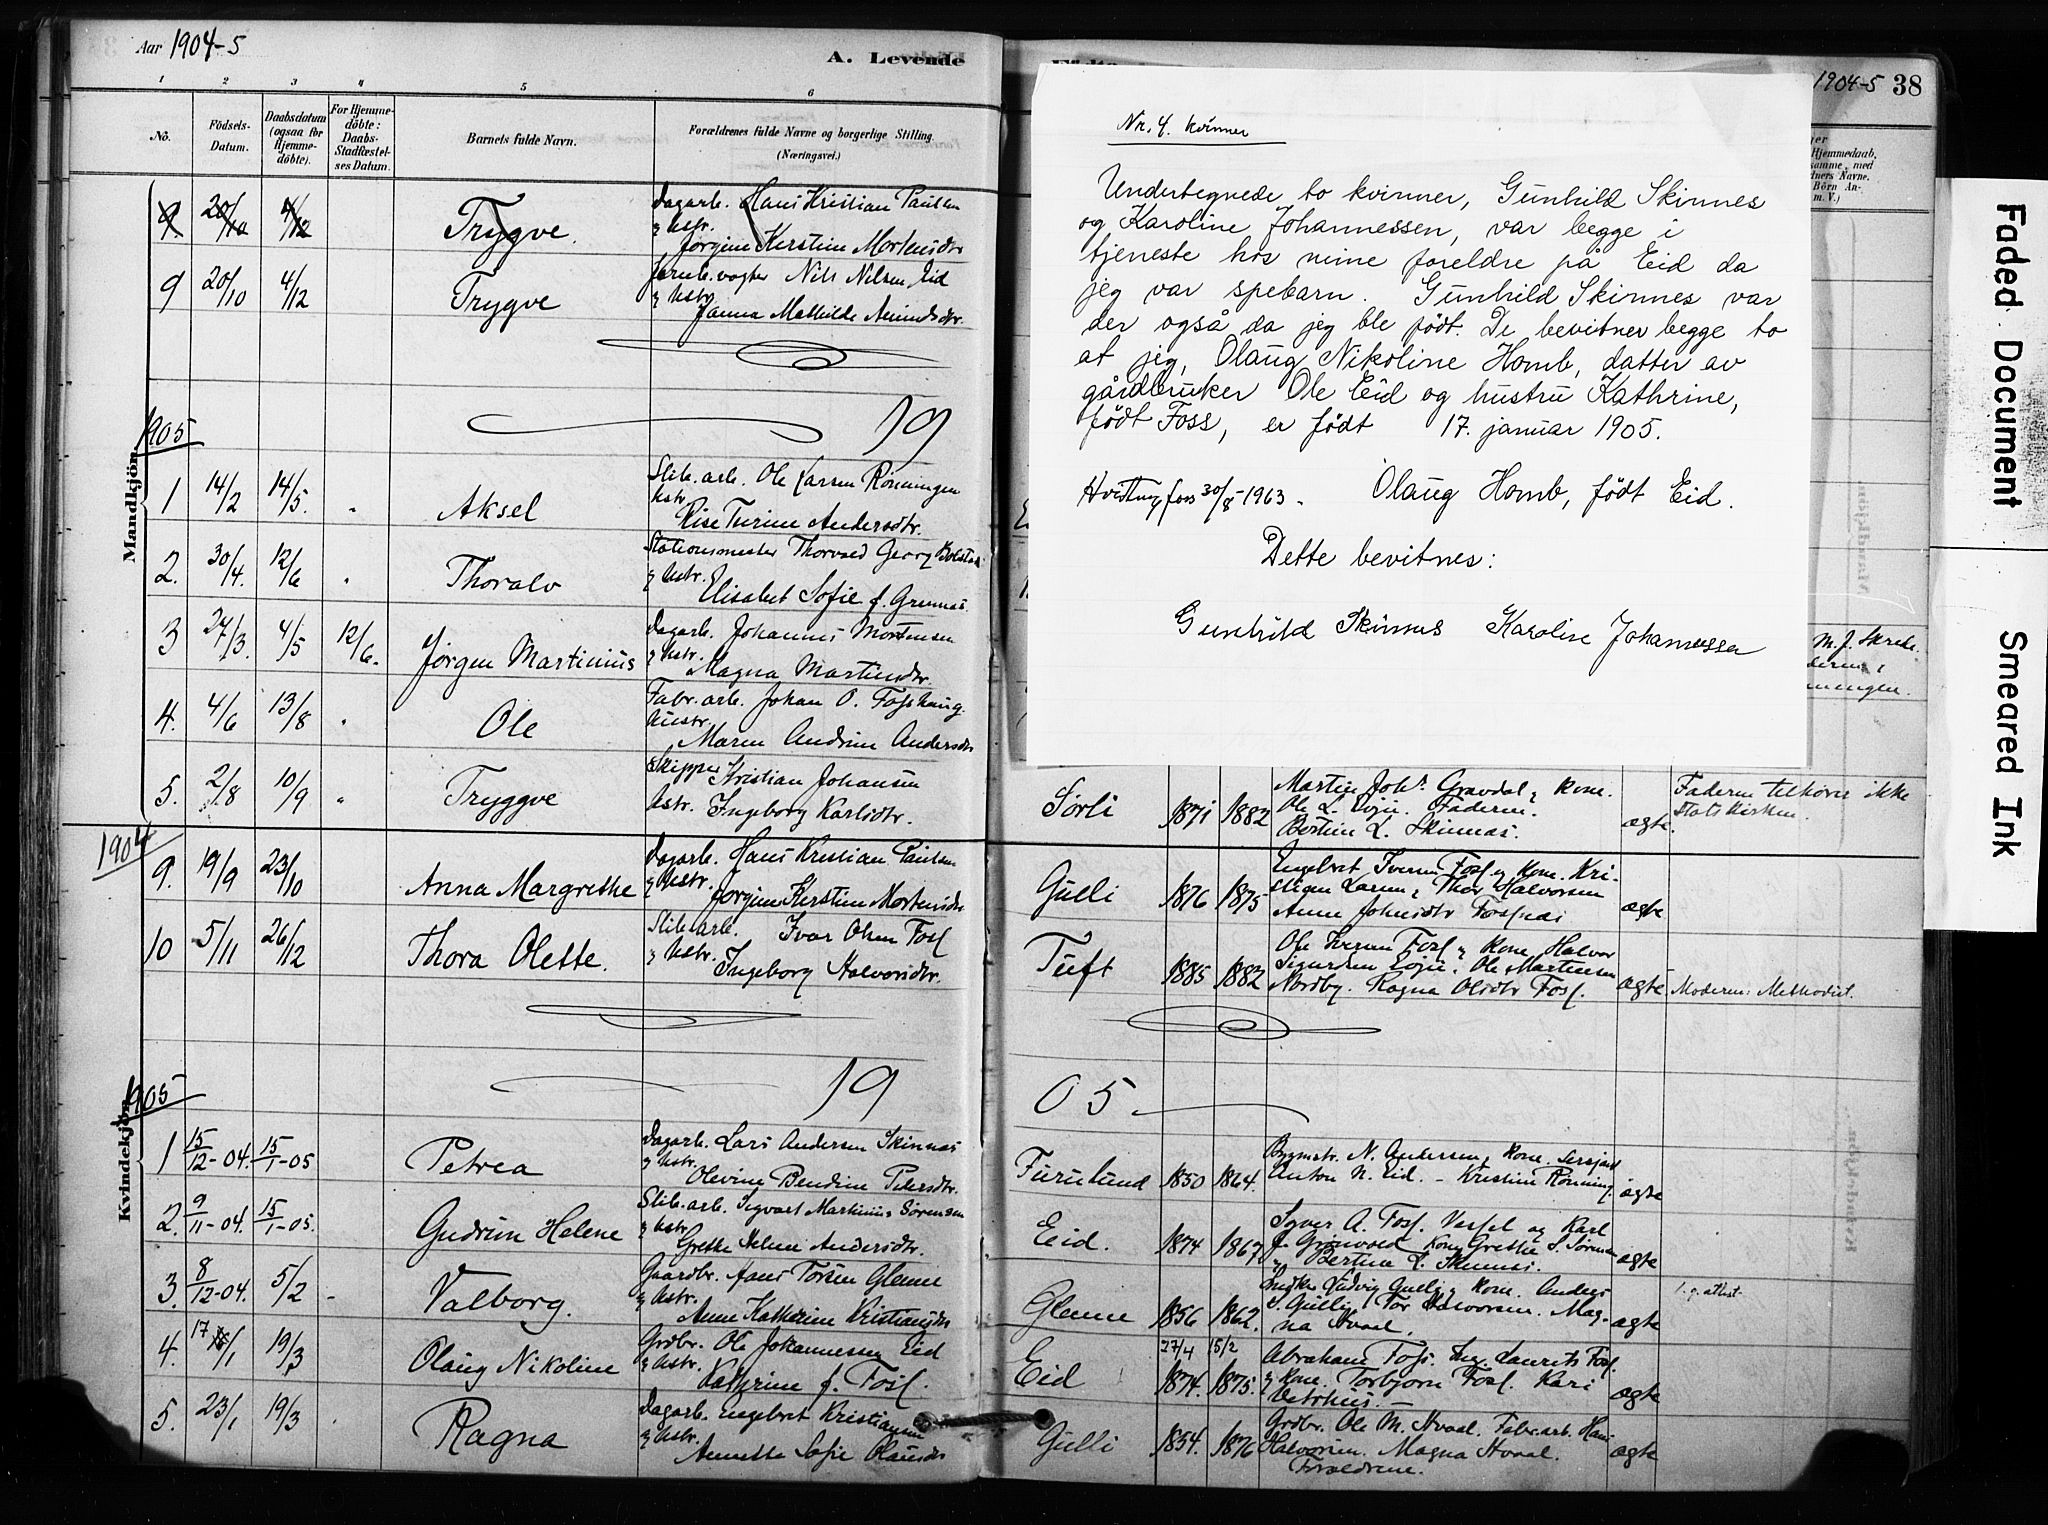 Aar 1904-5
A. Levende
1904-5 38
1 2 3 4 5 6
No. Födsels-Datum. Daabsdatum (ogsaa for Hjemmedöbte). For Hjemmedöbte: Daabs-Stadfæstelses Datum. Barnets fulde Navn. Forældrenes fulde Navne og borgerlige Stilling. (Næringsvei.)
Hjemmedaab,
samme, med
Navne.
Börn An-
m. V.)
9. 20/10 4/12 Trygve. Dagarb. Hans Kristian Paulsen
& Hstr.
Jørgine Kerstine Mortensdtr
9 20/10 4/12 Trygve Jernb.vogter Nils Nilsen Eid
& Hstr.
Janna Mathilde Amundsdtr.
1905
19
Mandkjön
1 14/2 14/5. " Aksel Slib.arb. Ole Larsen Rönningen
Hstr.
Andersdtr.
2. 30/4. 12/6 " Thoralv Stationsmester Thorvald Georg
& Hstr.
Elisabet Sofie f. Grennes.
3 27/3. 4/5 12/6. Jörgen Martinius Dagarb. Johannes Mortensen
& Hstr.
Magna Martinsdtr.
4. 4/6 13/8 " Ole Fabr.arb. Johan O. Fosshaug.
Hustr.
Maren Andrine Andersdtr
5. 2/8 10/9 " Tryggve Skipper Kristian Johansen
Hstr. Ingeborg Karlsdtr.
1904
9. 19/9 23/10 Anna Margrethe Dagarb. Hans Kristian Paulsen
& Hstr.
Jørgine Kerstine Mortensdtr
10 5/11 26/12 Thora Olette. Slib.arb. Ivar Olsen Foss
& Hstr.
Ingeborg Halvorsdtr.
19
1905
Kvindekjön
1 15/12-04. 15/1-05 Petrea Dagarb. Lars Andersen Skinnes
& Hstr.
Olevine Bendine Petersdtr.
2. 9/11-04. 15/1-05. Gudrun Helene Slib.arb. Sigvart Martinius Sørensen
& Hstr.
Grethe Helene Andersdtr.
3. 8/12-04. 5/2 - Valborg. Gaardbr. Hans Torsen Glenne
& Hstr.
Anne Katherine Kristiansdtr
4. 17/1 19/3 Olaug Nikoline Grdbr. Ole Johannessen Eid
& Hstr.
Kathrine f. Foss.
5. 23/1 19/3 Ragna Dagarb. Engebret Kristiansen
& Hstr.
Annette Sofie Olausdtr
Nr. 4. kvinner
Undertegnede to kvinner, Gunhild Skinnes
og Karoline Johannessen, var begge i
tjeneste hos mine foreldre på Eid da
jeg var spebarn. Gunhild Skinnes var
der også da jeg ble født. De bevitner begge to
at jeg, Olaug Nikoline Homb, datter av
gårdbruker Ole Eid og hustru Kathrine,
født Foss, er født 17. januar 1905.
Hvittingfoss 30/8-1963. Olaug Homb, født Eid.
Dette bevitnes:
Gunhild Skinnes Karoline Johannessen
M. J. Skrett.
Sörli 1871 1882 Martin Johs. Gravdal & kone.
Ole L. Faderen.
Bertine L. Skinnes. ægte. Faderen tilhører ikke
statskirken.
Gulli 1876 1875 Engebret Iversen Foss & kone. Kri-
stian Larsen, Thor Halvorsen
Anne Johnsdtr Fossnæs ægte
Tuft 1885 1882 Ole Iversen Foss & kone Halvor
Sigurdsen. Ole Martinsen
Nordby. Ragna Olsdtr Foss. ægte Moderen: Methodist.
05
Furulund 1850 1864. Bygmstr. N. Andersen & kone. Sersjant
Anton N. Eid. - Kristine Rönning. ægte
Eid. 1874 1867 Syver A. Foss. og Karl
J. Grönvold. Kone Grethe S. Sørensen
& Bertine L. Skinnes. ægte
Glenne 1856 1862. Ludvig Gulli & kone. Anders
S. Gulli, Tor Halvorsen. Mag-
na Hvaal. ægte
Eid 27/4 1874. 15/2 1875. Abraham Foss. Laurits Foss.
& kone. Torbjørn Foss. Kari
ægte
Gulli 1854. 1876 Grdbr. Ole M. Hvaal. Fabr.arb. Hans
Halvorsen. Magna Hvaal.
Forældrene. ægte
Faded Document
Smeared Ink